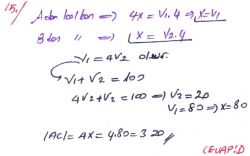 15/
A dan bakban ⇒ 4x = V₁.4 ⇒ x=V₁
B den " ⇒ x = V₂.4
V₁ = 4V₂ olur.
V₁ + V₂ = 100
4V₂ + V₂ = 100 ⇒ V₂ = 20
V₁ = 80 ⇒ x = 80
|AC| = 4x = 4.80 = 320 //
CEVAP:D